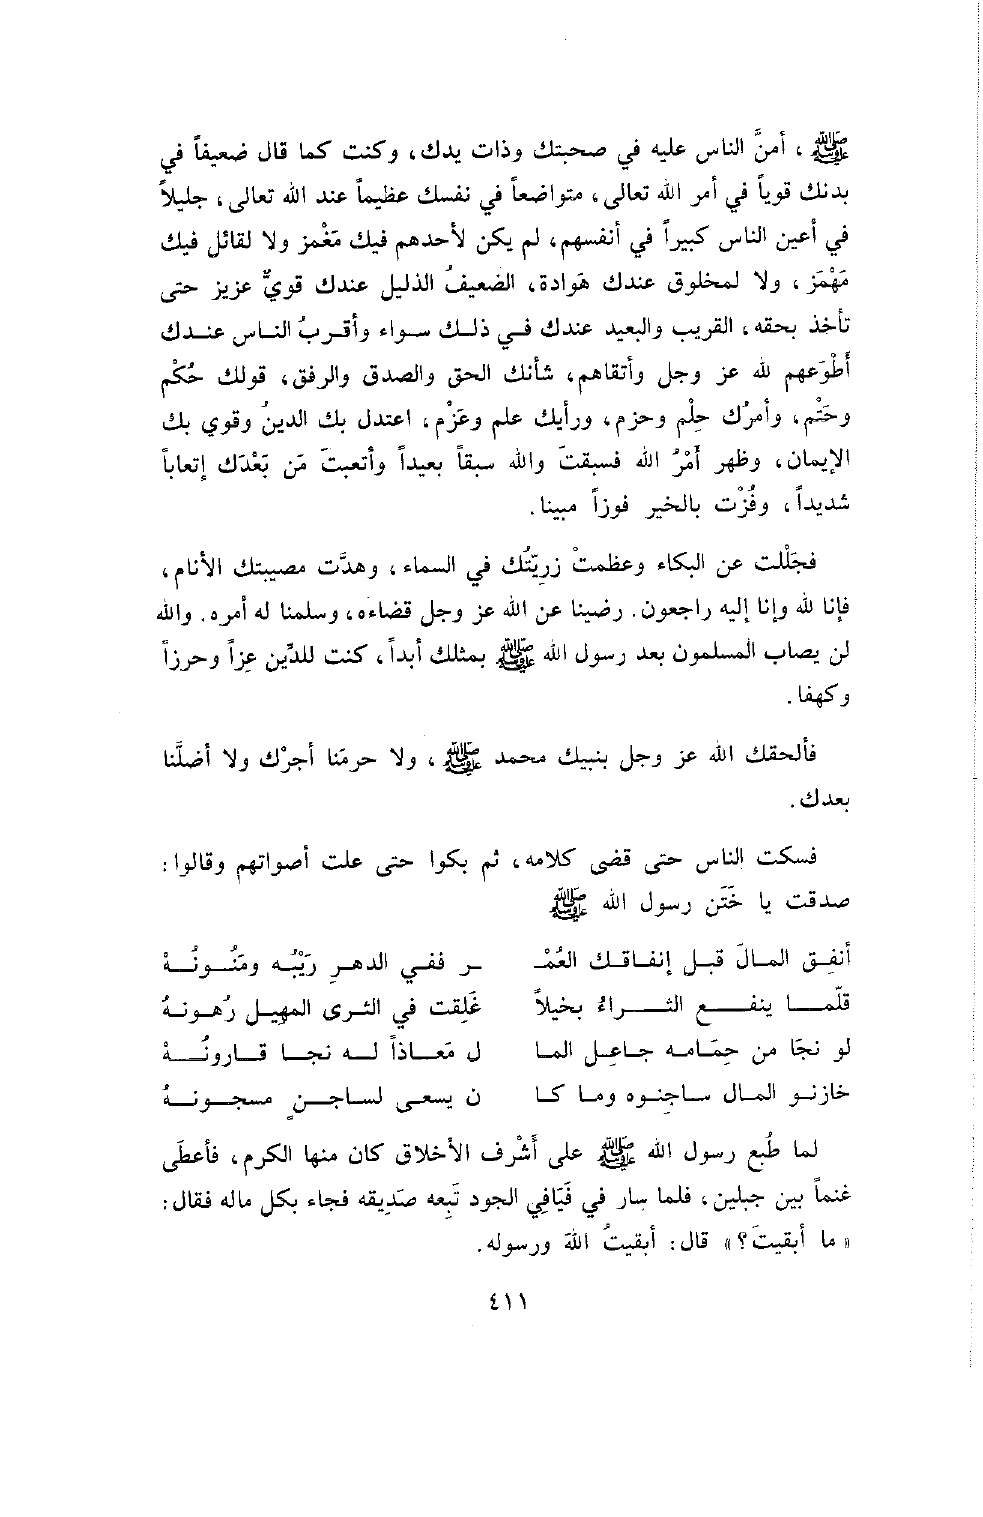 ﷺ ، أمنَّ الناس عليه في صحبتك وذات يدك، وكنت كما قال ضعيفاً في
بدنك قوياً في أمر الله تعالى، متواضعاً في نفسك عظيماً عند الله تعالى، جليلاً
في أعين الناس كبيراً في أنفسهم، لم يكن لأحدهم فيك مَغْمز ولا لقائل فيك
مَهْمَز، ولا لمخلوق عندك هَوادة، الضعيفُ الذليل عندك قويٌّ عزيز حتى
تأخذ بحقه، القريب والبعيد عندك في ذلك سواء وأقربُ الناس عندك
أطْوَعهم لله عز وجل وأتقاهم، شأنك الحق والصدق والرفق، قولك حُكْم
وحَتْم، وأمرُك حِلْم وحزم، ورأيك علم وعَزْم، اعتدل بك الدينُ وقوي بك
الإيمان، وظهر أَمْرُ الله فسبقتَ والله سبقاً بعيداً وأتعبتَ مَن بَعْدَك إتعاباً
شديداً، وفُزْت بالخير فوزاً مبينا.
فجَلَلْت عن البكاء وعظمتْ زريّتُك في السماء، وهدَّت مصيبتك الأنام،
فإنا لله وإنا إليه راجعون. رضينا عن الله عز وجل قضاءه، وسلمنا له أمره. والله
لن يصاب المسلمون بعد رسول الله ﷺ بمثلك أبداً، كنت للدِّين عِزاً وحرزاً
وكهفا.
فألحقك الله عز وجل بنبيك محمد ﷺ ، ولا حرمَنا أجرْك ولا أضلَّنا
بعدك.
فسكت الناس حتى قضى كلامه، ثم بكوا حتى علت أصواتهم وقالوا:
صدقت يا خَتَن رسول الله ﷺ
أنفِق المالَ قبل إنفاقك العُمْـ ـر ففي الدهرِ رَيْبُه ومَنُونُهْ
قلّما ينفع الثراءُ بخيلاً غَلِقت في الثرى المهيل رُهونهُ
لو نجَا من حِمَامه جاعِل الما ل مَعَاذاً له نجا قارونُهْ
خازنو المال ساجنوه وما كا ن يسعى لساجنٍ مسجونهُ
لما طُبع رسول الله ﷺ على أَشْرف الأخلاق كان منها الكرم، فأعطَى
غنماً بين جبلين، فلما سار في فَيَافِي الجود تَبِعه صَدِيقه فجاء بكل ماله فقال:
« ما أبقيتَ؟» قال: أبقيتُ اللهَ ورسوله.
٤١١